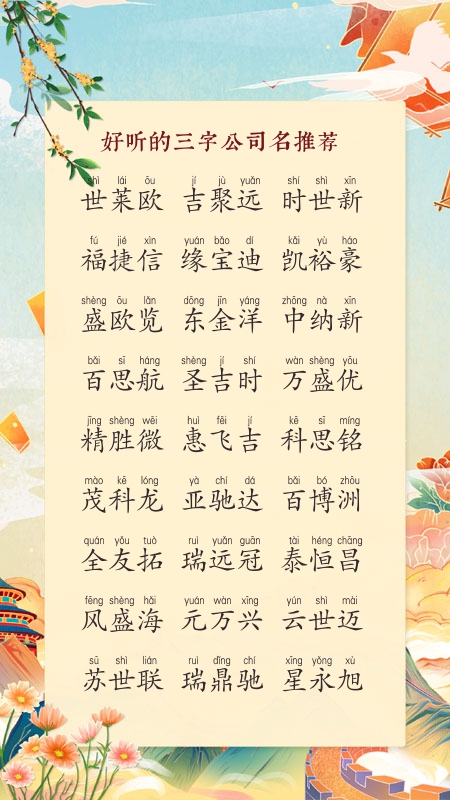 好听的三字公司名推荐
shì lái ōu jí jù yuǎn shí shì xīn
世莱欧 吉聚远 时世新
fú jié xìn yuán bǎo dí kǎi yù háo
福捷信 缘宝迪 凯裕豪
shèng ōu lǎn dōng jīn yáng zhōng nà xīn
盛欧览 东金洋 中纳新
bǎi sī háng shèng jí shí wàn shèng yōu
百思航 圣吉时 万盛优
jīng shèng wēi huì fēi jí kē sī míng
精胜微 惠飞吉 科思铭
mào kē lóng yà chí dá bǎi bó zhōu
茂科龙 亚驰达 百博洲
quán yǒu tuò ruì yuǎn guān tài héng chāng
全友拓 瑞远冠 泰恒昌
fēng shèng hǎi yuán wàn xīng yún shì mài
风盛海 元万兴 云世迈
sū shì lián ruì dǐng chí xīng yǒng xù
苏世联 瑞鼎驰 星永旭